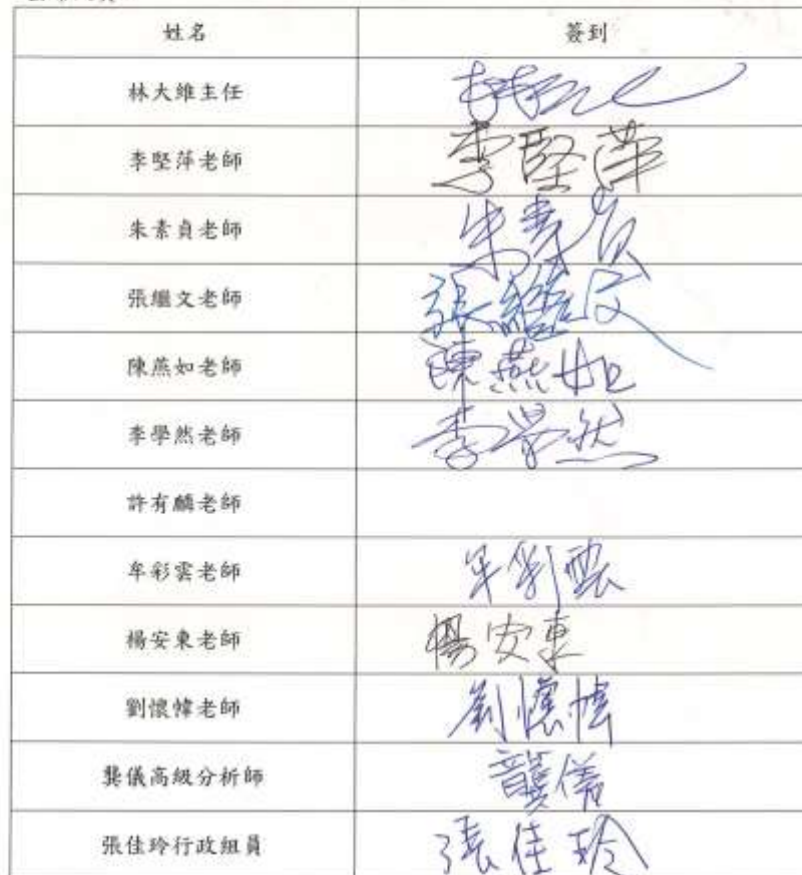 姓名 簽到
林大維主任
李堅萍老師 李堅萍
朱素貞老師 朱素貞
張繼文老師 張繼文
陳燕如老師 陳燕如
李學然老師 李學然
許有麟老師
牟彩雲老師 牟彩雲
楊安東老師 楊安東
劉懷幃老師 劉懷幃
龔儀高級分析師 龔儀
張佳玲行政組員 張佳玲